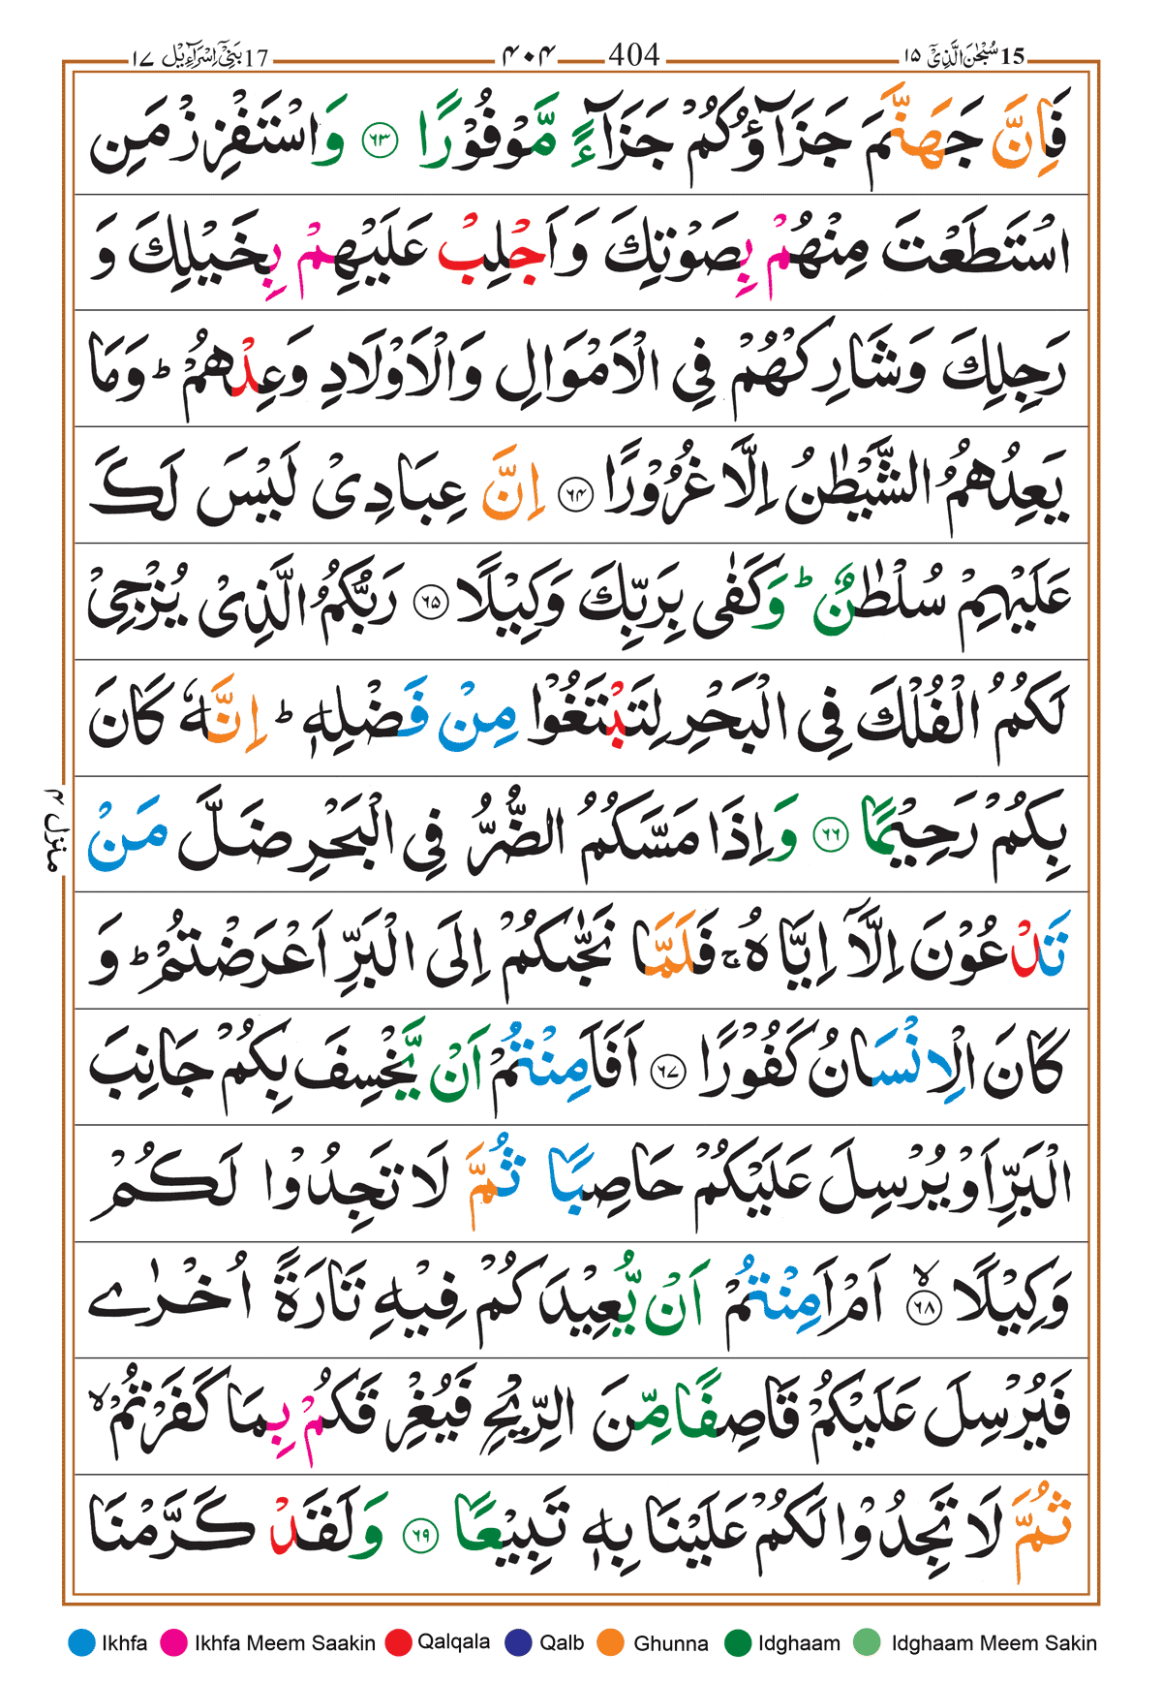 15 سُبْحٰنَ الَّذِیْۤ ۱۵ 404 ۴۰۴ 17 بَنِیْۤ اِسْرَآءِیْل ۱۷
فَاِنَّ جَهَنَّمَ جَزَآؤُكُمْ جَزَآءً مَّوْفُوْرًا ﴿۶۳﴾ وَاسْتَفْزِزْ مَنِ
اسْتَطَعْتَ مِنْهُمْ بِصَوْتِكَ وَاَجْلِبْ عَلَيْهِمْ بِخَيْلِكَ وَ
رَجِلِكَ وَشَارِكْهُمْ فِی الْاَمْوَالِ وَالْاَوْلَادِ وَعِدْهُمْ ؕ وَمَا
يَعِدُهُمُ الشَّيْطٰنُ اِلَّا غُرُوْرًا ﴿۶۴﴾ اِنَّ عِبَادِیْ لَيْسَ لَكَ
عَلَيْهِمْ سُلْطٰنٌ ؕ وَكَفٰی بِرَبِّكَ وَكِيْلًا ﴿۶۵﴾ رَبُّكُمُ الَّذِیْ يُزْجِیْ
لَكُمُ الْفُلْكَ فِی الْبَحْرِ لِتَبْتَغُوْا مِنْ فَضْلِهٖ ؕ اِنَّهٗ كَانَ
بِكُمْ رَحِيْمًا ﴿۶۶﴾ وَاِذَا مَسَّكُمُ الضُّرُّ فِی الْبَحْرِ ضَلَّ مَنْ
تَدْعُوْنَ اِلَّاۤ اِيَّاهُ ۚ فَلَمَّا نَجّٰىكُمْ اِلَی الْبَرِّ اَعْرَضْتُمْ ؕ وَ
كَانَ الْاِنْسَانُ كَفُوْرًا ﴿۶۷﴾ اَفَاَمِنْتُمْ اَنْ يَّخْسِفَ بِكُمْ جَانِبَ
الْبَرِّ اَوْ يُرْسِلَ عَلَيْكُمْ حَاصِبًا ثُمَّ لَا تَجِدُوْا لَكُمْ
وَكِيْلًا ۙ﴿۶۸﴾ اَمْ اَمِنْتُمْ اَنْ يُّعِيْدَكُمْ فِيْهِ تَارَةً اُخْرٰی
فَيُرْسِلَ عَلَيْكُمْ قَاصِفًا مِّنَ الرِّيْحِ فَيُغْرِقَكُمْ بِمَا كَفَرْتُمْ ۙ
ثُمَّ لَا تَجِدُوْا لَكُمْ عَلَيْنَا بِهٖ تَبِيْعًا ﴿۶۹﴾ وَلَقَدْ كَرَّمْنَا
منزل ۴
Ikhfa Ikhfa Meem Saakin Qalqala Qalb Ghunna Idghaam Idghaam Meem Sakin